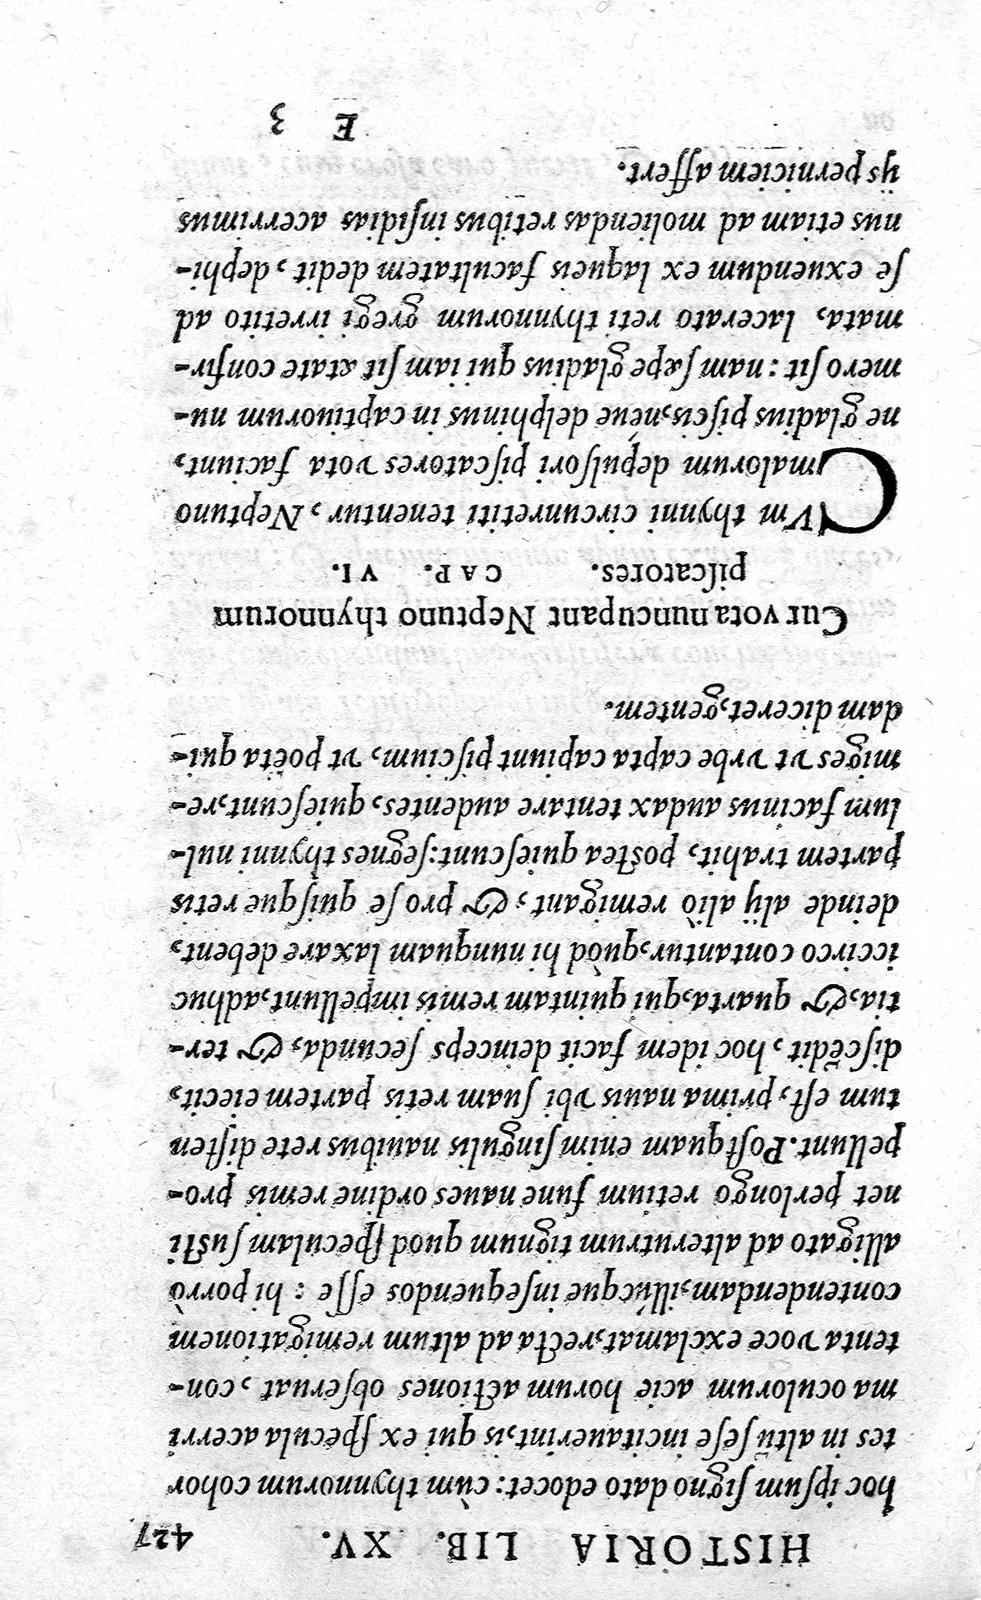 HISTORIA LIB. XV. 427
hoc ipsum signo dato edocet: cùm thynnorum cohor
tes in altũ sese incitauerint, is qui ex specula acerri
ma oculorum acie horum actiones obseruat, con-
tenta voce exclamat, rectà ad altum remigationem
contendendam, illúcque insequendos esse: hi porrò
alligato ad alterutrum tignum quod speculam susti
net perlongo retium fune naues ordine remis pro-
pellunt. Postquam enim singulis nauibus rete disten
tum est, prima nauis vbi suam retis partem eiecit,
discēdit, hoc idem facit deinceps secunda, & ter-
tia, & quarta, qui quintam remis impellunt, adhuc
iccirco contantur, quòd hi nunquam laxare debent,
deinde alij aliò remigant, & pro se quisque retis
partem trahit, postea quiescunt: segnes thynni nul-
lum facinus audax tentare audentes, quiescunt, re-
miges vt vrbe capta capiunt piscium, vt poëta qui-
dam diceret, gentem.
Cur vota nuncupant Neptuno thynnorum
piscatores. CAP. VI.
CVm thynni circunretiti tenentur, Neptuno
malorum depulsori piscatores vota faciunt,
ne gladius piscis, néue delphinus in captiuorum nu-
mero sit: nam sæpe gladius qui iam sit ætate confir-
mata, lacerato reti thynnorum gregi irretito ad
se exuendum ex laqueis facultatem dedit, dephi-
nus etiam ad moliendas retibus insidias acerrimus
ijs perniciem affert.
E 3